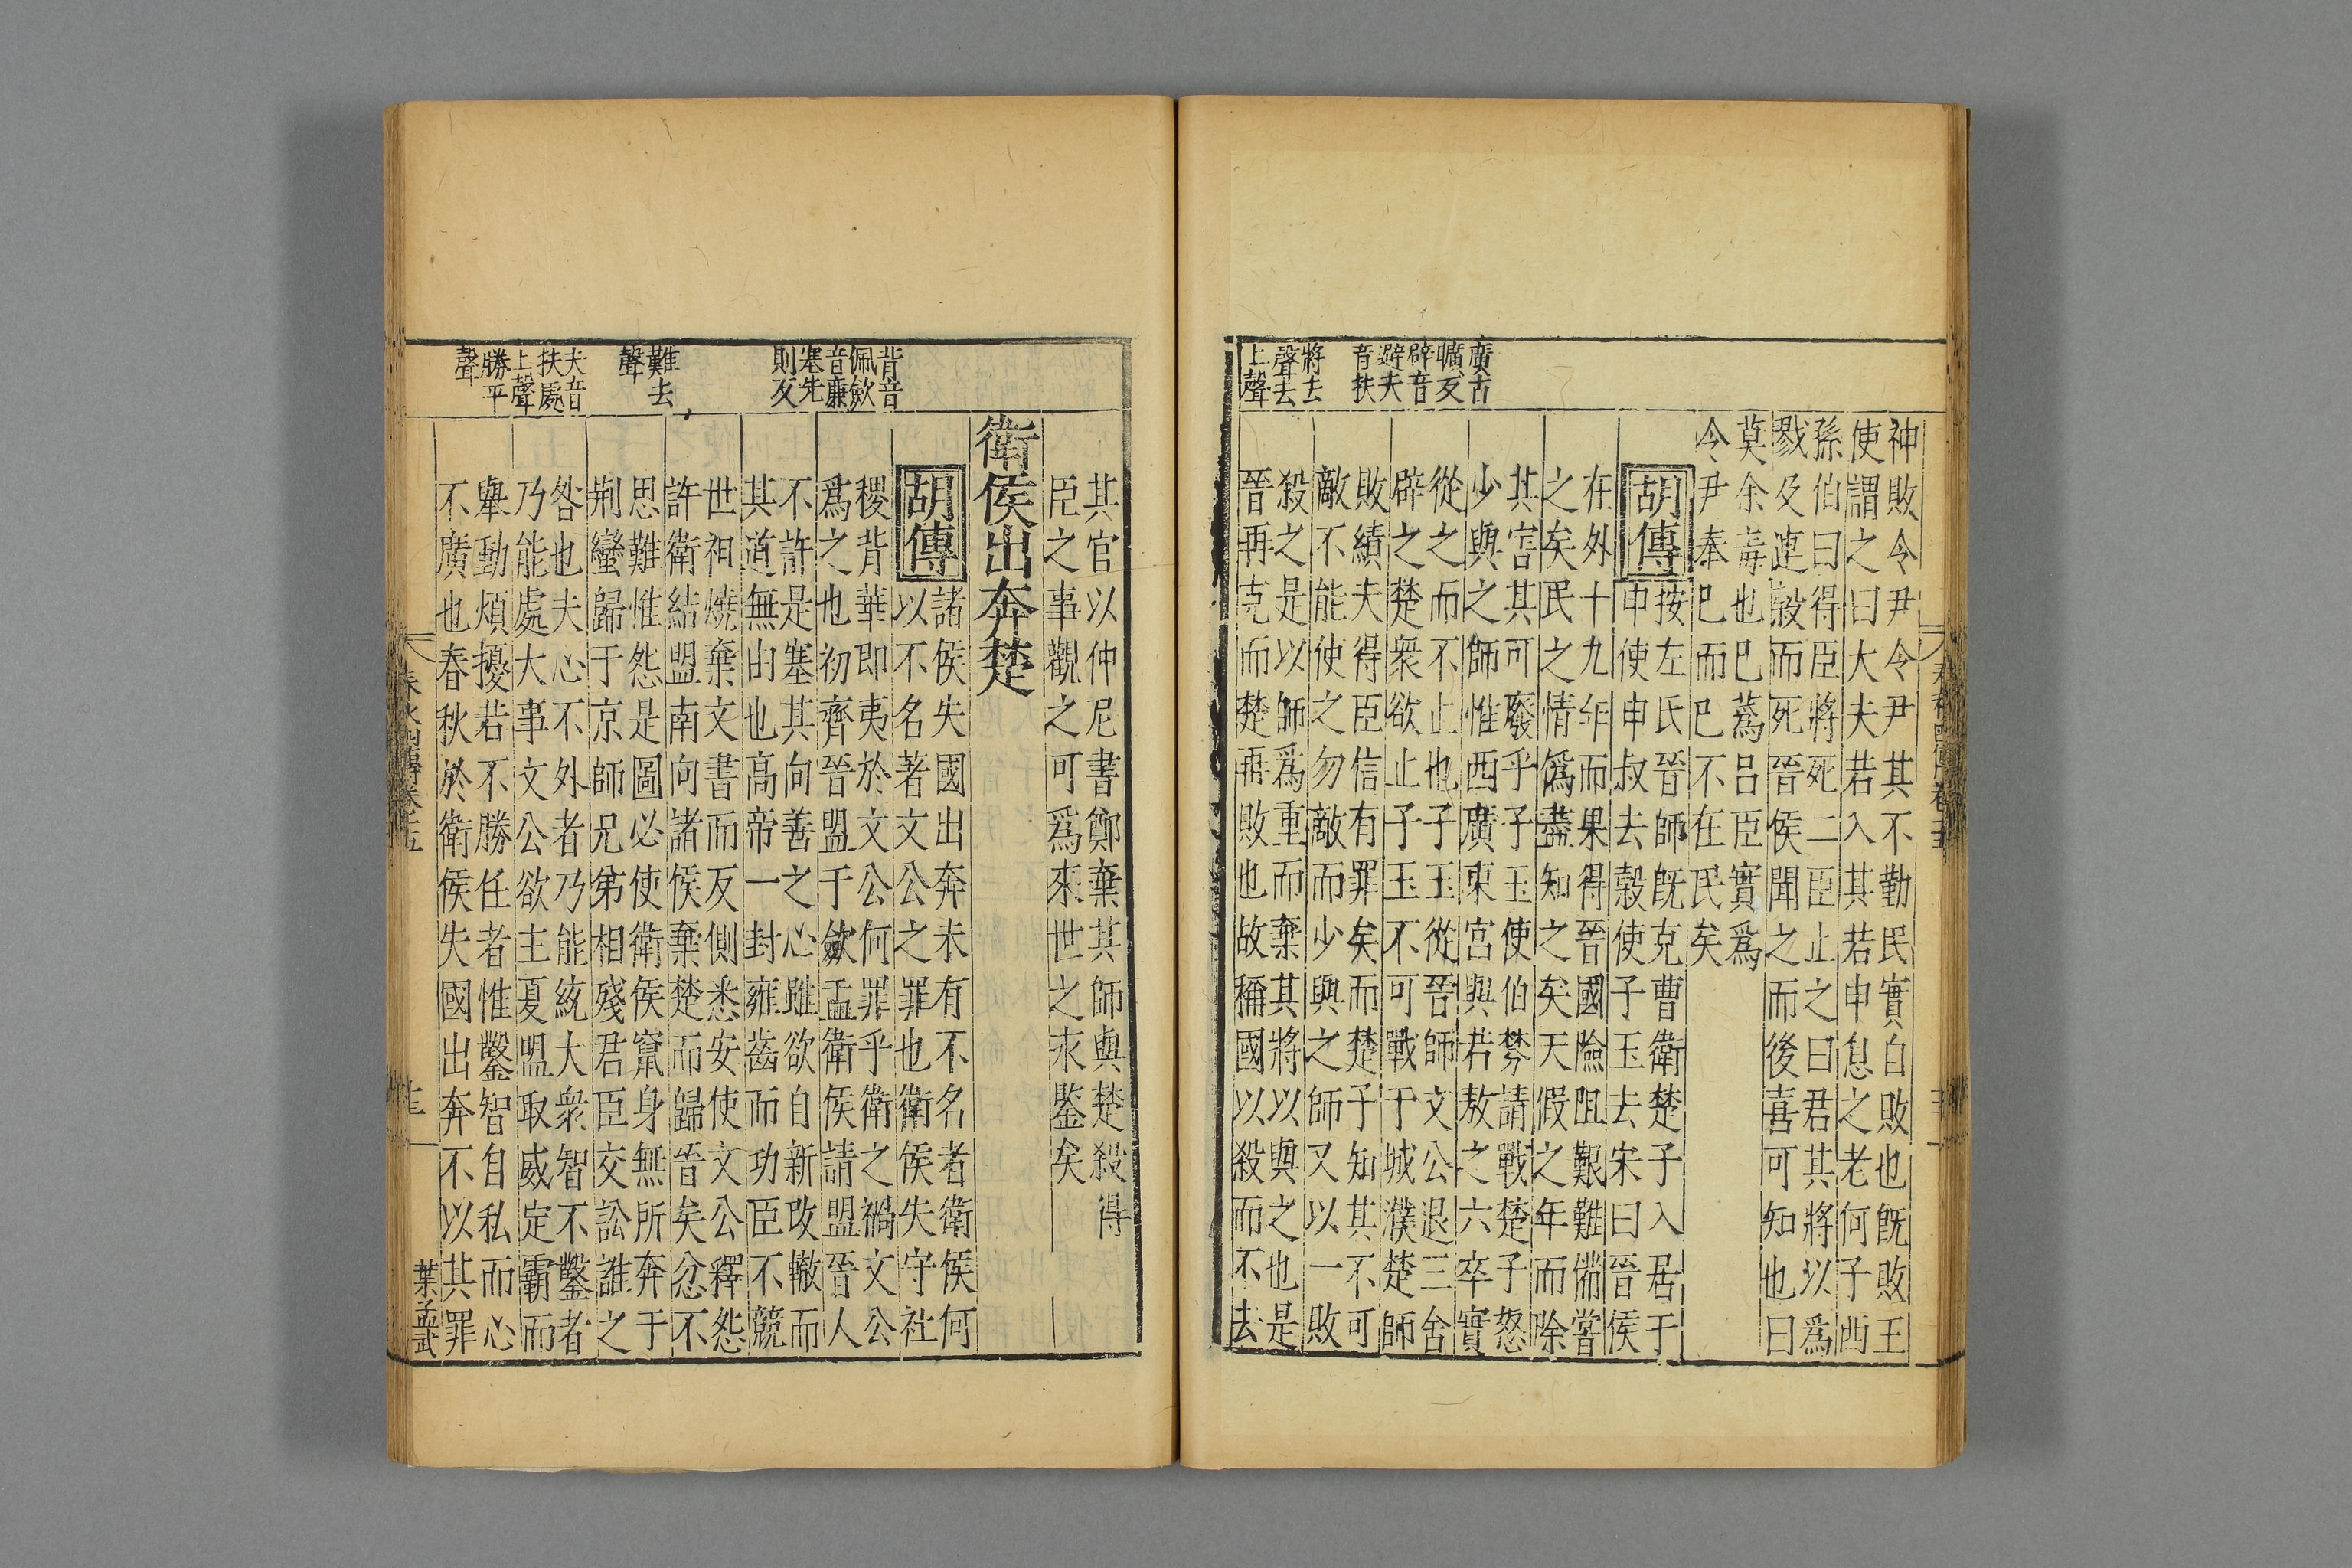 廣古
曠反
辟音
避夫
音扶
將去
聲去
上聲
神敗令尹令尹其不勤民實自敗也既敗王
使謂之曰大夫若入其若申息之老何子西
孫伯曰得臣將死二臣止之曰君其將以為
戮及連穀而死晉侯聞之而後喜可知也曰
莫余毒也已蔿呂臣實爲
令尹奉已而已不在民矣
胡傳
按左氏晉師既克曹衛楚子入居于
申使申叔去榖使子玉去宋曰晉侯
在外十九年而果得晉國險阻艱難備嘗
之矣民之情僞盡知之矣天假之年而除
其害其可廢乎子玉使伯棼請戰楚子怒
少與之師惟西廣東宮與若敖之六卒實
從之而不止也子玉從晉師文公退三舍
辟之楚衆欲止子玉不可戰于城濮楚師
敗績夫得臣信有罪矣而楚子知其不可
敵不能使之勿敵而少與之師又以一敗
殺之是以師爲重而棄其將以與之也是
晉再克而楚再敗也故稱國以殺而不去
其官以仲尼書鄭棄其師與楚殺得
臣之事觀之可爲來世之永鑒矣
衛侯出奔楚
背音
佩歛
音廉
塞先
則反
難去
聲
夫音
扶處
上聲
勝平
聲
胡傳
諸侯失國出奔未有不名者衛侯何
以不名著文公之罪也衛侯失守社
稷背華即夷於文公何罪乎衛之禍文公
爲之也初齊晉盟于歛盂衛侯請盟晉人
不許是塞其向善之心雖欲自新改轍而
其道無由也高帝一封雍齒而功臣不競
世祖燒棄文書而反側悉安使文公釋怨
許衛結盟南向諸侯棄楚而歸晉矣忿不
思難惟怨是圖必使衛侯竄身無所奔于
荆蠻歸于京師兄弟相殘君臣交訟誰之
咎也夫心不外者乃能統大衆智不鑿者
乃能處大事文公欲主夏盟取威定霸而
舉動煩擾若不勝任者惟鑿智自私而心
不廣也春秋於衛侯失國出奔不以其罪
葉孟武